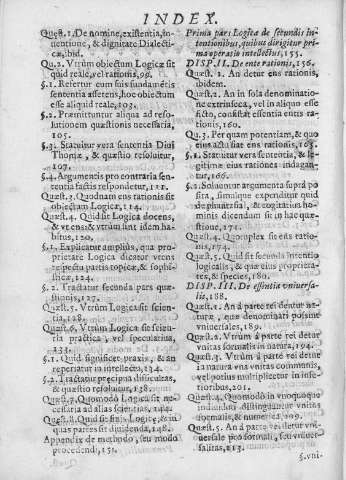 INDEX.
Quæst. 1. De nomine, existentia, in-
uentione, & dignitate Dialecti-
cæ, ibid.
Qu. 2. Vtrùm obiectum Logicæ sit
quid reale, vel rationis, 99.
§. 1. Refertur cum suis fundamentis
sententia asserens, hoc obiectum
esse aliquid reale, 103.
§. 2. Præmittuntur aliqua ad reso-
lutionem quæstionis necessaria,
105.
§. 3. Statuitur vera sententia Diui
Thomæ, & quæstio resoluitur,
107.
§. 4. Argumentis pro contraria sen-
tentia factis respondetur, 111.
Quæst. 3. Quodnam ens rationis sit
obiectum Logicæ, 114.
Quæst. 4. Quid sit Logica docens,
& vtens: & vtrùm sint idem ha-
bitus, 120.
§. 1. Explicatur amplius, qua pro-
prietate Logica dicatur vtens
respectu partis topicæ, & sophi-
sticæ, 124.
§. 2. Tractatur secunda pars quæ-
stionis, 127.
Quæst. 5. Vtrùm Logica sit scien-
tia, 128.
Quæst. 6. Vtrùm Logica sit scien-
tia practica, vel speculatiua,
133.
§. 1. Quid significet praxis, & an
reperiatur in intellectu, 134.
§. 2. Tractatur præcipua difficultas,
& quæstio resoluitur, 138.
Quæst. 7. Quomodò Logica sit ne-
cessaria ad alias scientias, 144.
Quæst. 8. Quid sit finis Logicæ, & in
quas partes sit diuidenda, 148.
Appendix de methodo, seu modo
procedendi, 151.
Prima pars Logicæ de secundis in-
tentionibus, quibus dirigitur pri-
ma operatio intellectus, 155.
DISP. II. De ente rationis, 156.
Quæst. 1. An detur ens rationis,
ibidem.
Quæst. 2. An in sola denominatio-
ne extrinseca, vel in aliquo esse
ficto, constitat esse entis ratio-
nis, 160.
Qu. 3. Per quam potentiam, & quo
eius actu fiat ens rationis, 165.
§. 1. Statuitur vera sententia, & le-
gitimæ eius rationes indagan-
tur, 166.
§. 2. Soluuntur argumenta suprà po
sita, simulque expenditur quid
depictatu, & cogitatu ho-
minis dicendum sit in hac quæ-
stione, 171.
Quæst. 4. Quotuplex sit ens ratio-
nis, 174.
Quæst. 5. Quid sit secunda intentio
logicalis, & quæ eius proprieta-
tes, & species, 180.
DISP. III. De essentia vniuersa-
lis, 188.
Quæst. 1. An à parte rei dentur na-
turæ, quæ denominari possint
vniuersales, 189.
Quæst. 2. Vtrùm à parte rei detur
vnitas formalis in natura, 194.
Quæst. 3. Vtrùm à parte rei detur
in natura vna vnitas communis,
vel potius multiplicetur in infe-
rioribus, 201.
Quæst. 4. Quomodo in vnoquoque
indiuiduo distinguantur vnitas
formalis, & numerica, 209.
Quæst. 5. An à parte rei detur vni-
uersale pro formali, seu vniuer-
salitas, 213.
§. vni-